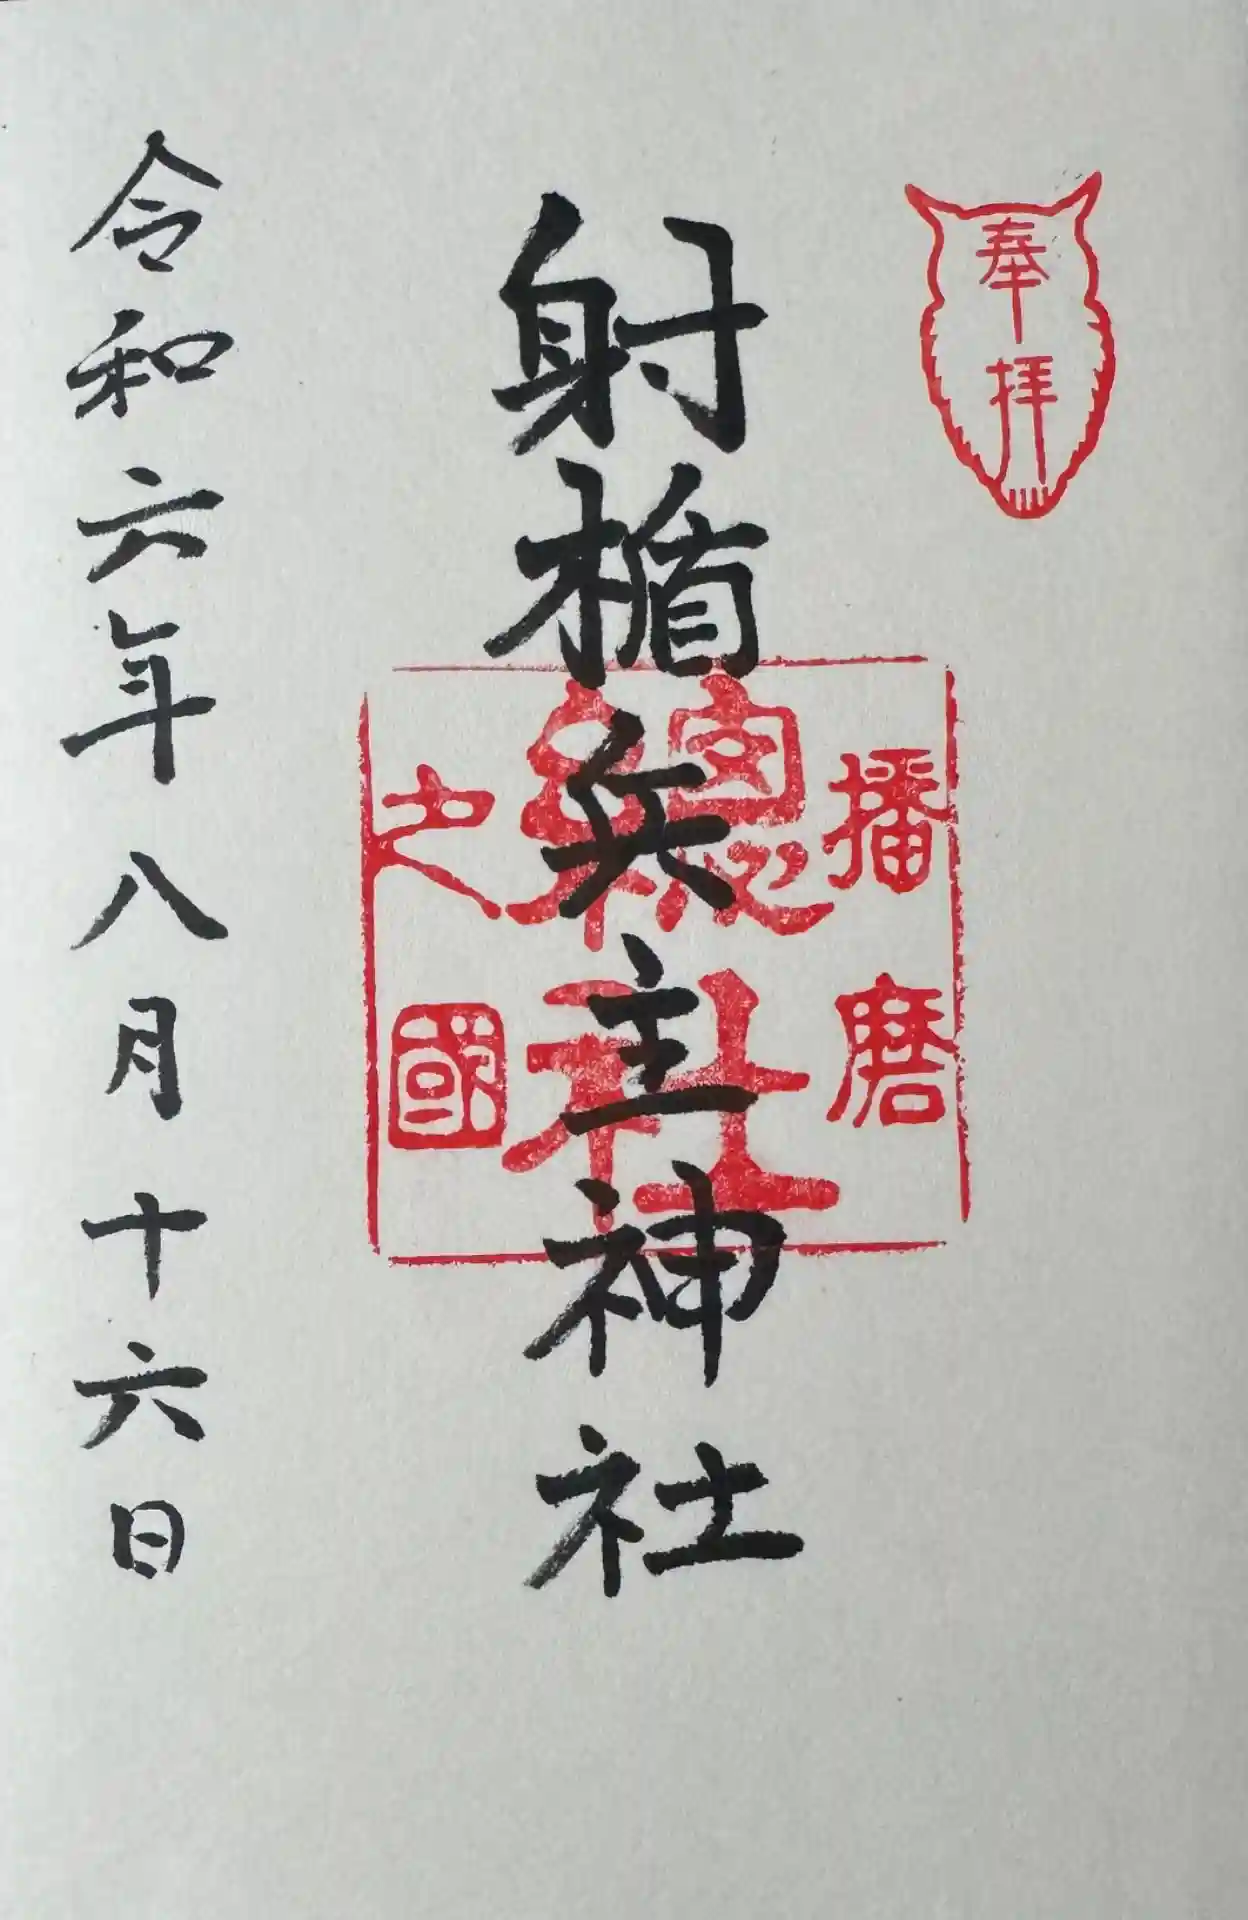 奉拝
射楯兵主神社
播磨
総社
之國
令和六年八月十六日